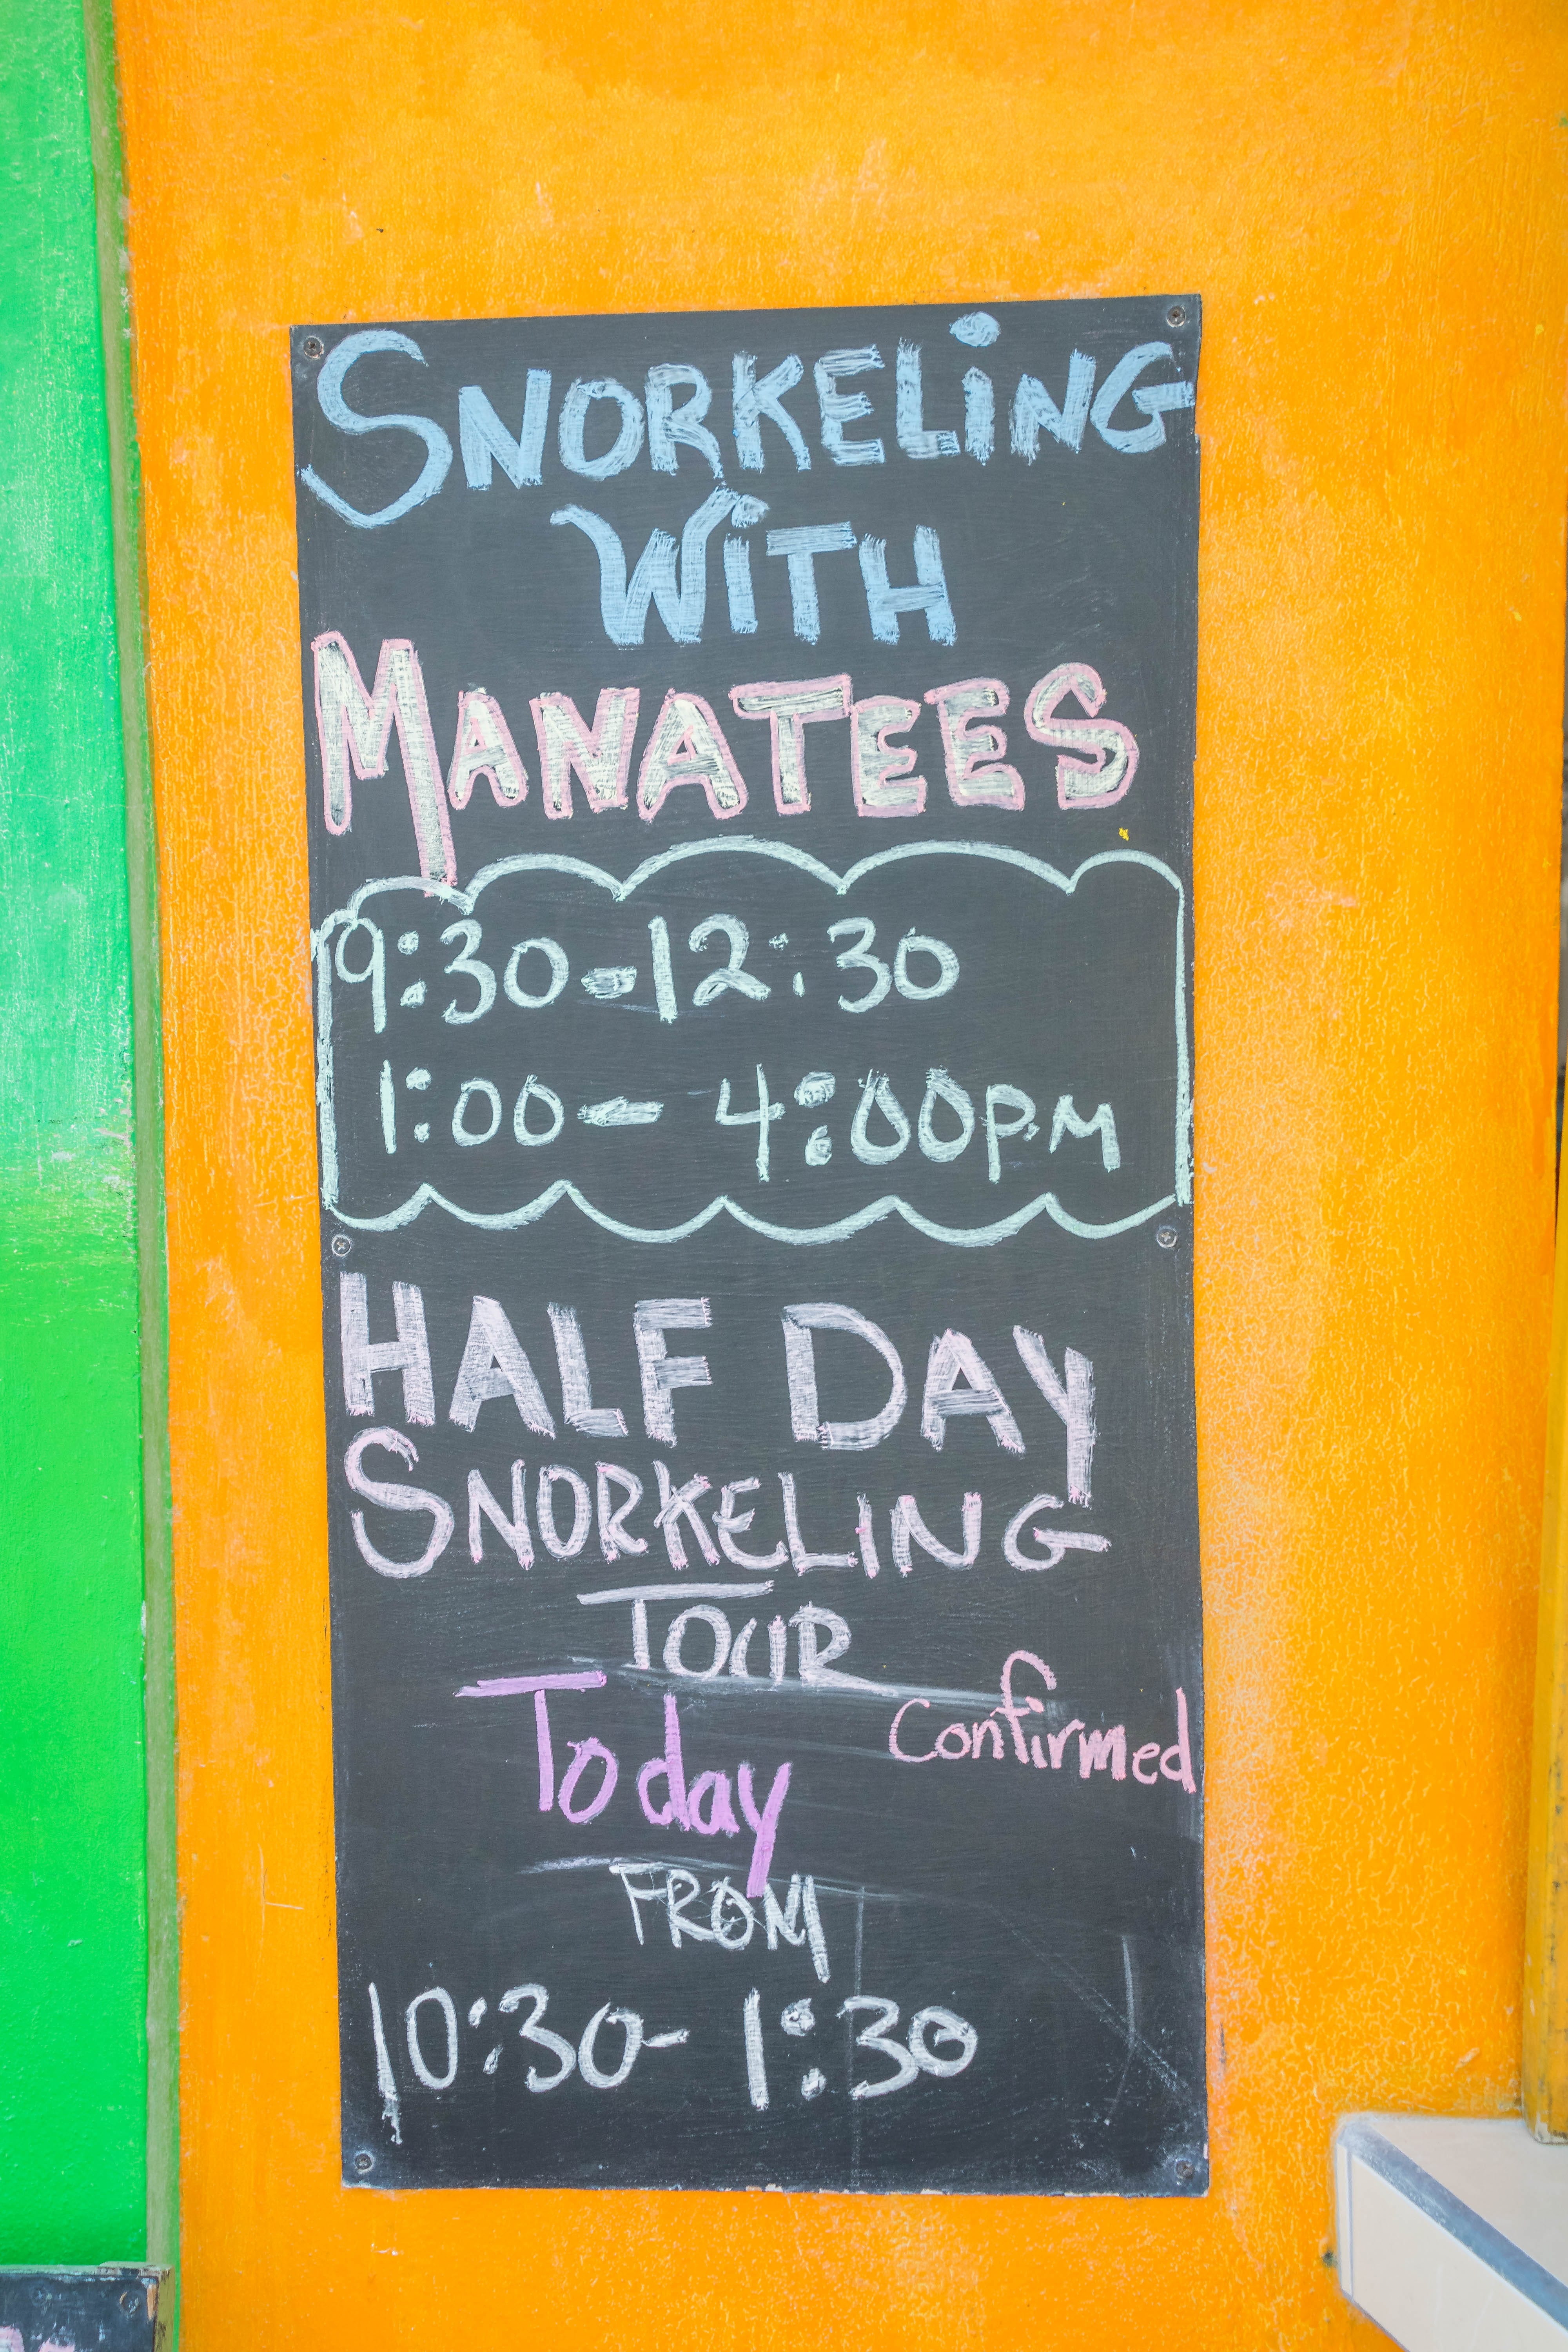 SNORKELiNG
WiTH
MANATEES
9:30-12:30
1:00- 4:00P.M
HALF DAY
SNORKELING
TOUR
Today Confirmed
FROM
10:30- 1:30